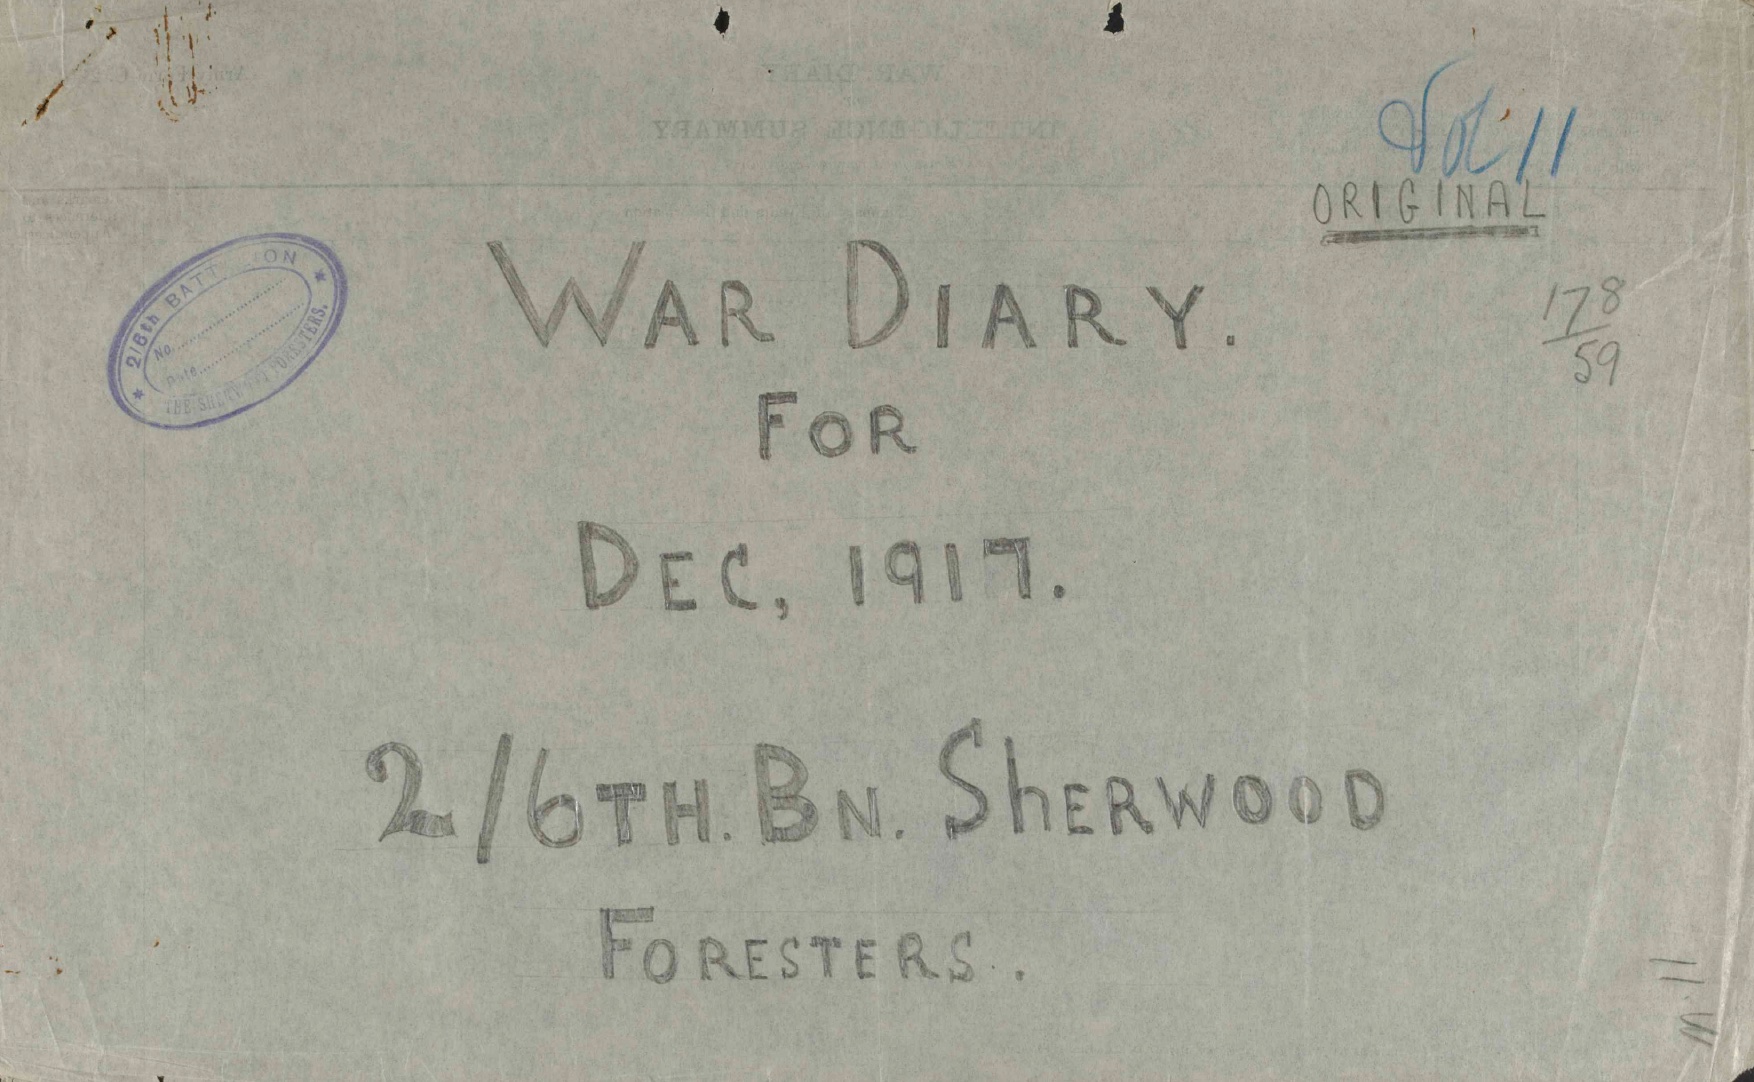 Vol 11
ORIGINAL
178
59
2/6th BATTALION
No.
Date
THE SHERWOOD FORESTERS.
WAR DIARY.
FOR
DEC, 1917.
2/6TH. BN. SHERWOOD
FORESTERS.
WAR DIARY
INTELLIGENCE SUMMARY